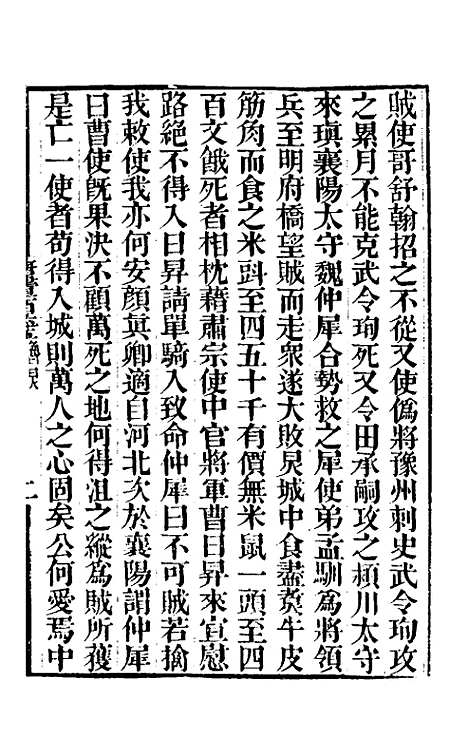 賊使哥舒翰招之不從又使僞將豫州刺史武令珣攻
之累月不能克武令珣死又令田承嗣攻之潁川太守
來瑱襄陽太守魏仲犀合勢救之犀使弟孟馴爲將領
兵至明府橋望賊而走衆遂大敗炅城中食盡煑牛皮
筋角而食之米㪷至四五十千有價無米鼠一頭至四
百文餓死者相枕藉肅宗使中官將軍曹日昇來宣慰
路絕不得入日昇請單騎入致命仲犀曰不可賊若擒
我敕使我亦何安顏眞卿適自河北次於襄陽謂仲犀
曰曹使旣果決不顧萬死之地何得沮之縱爲賊所獲
是亡一使者苟得入城則萬人之心固矣公何愛焉中
二